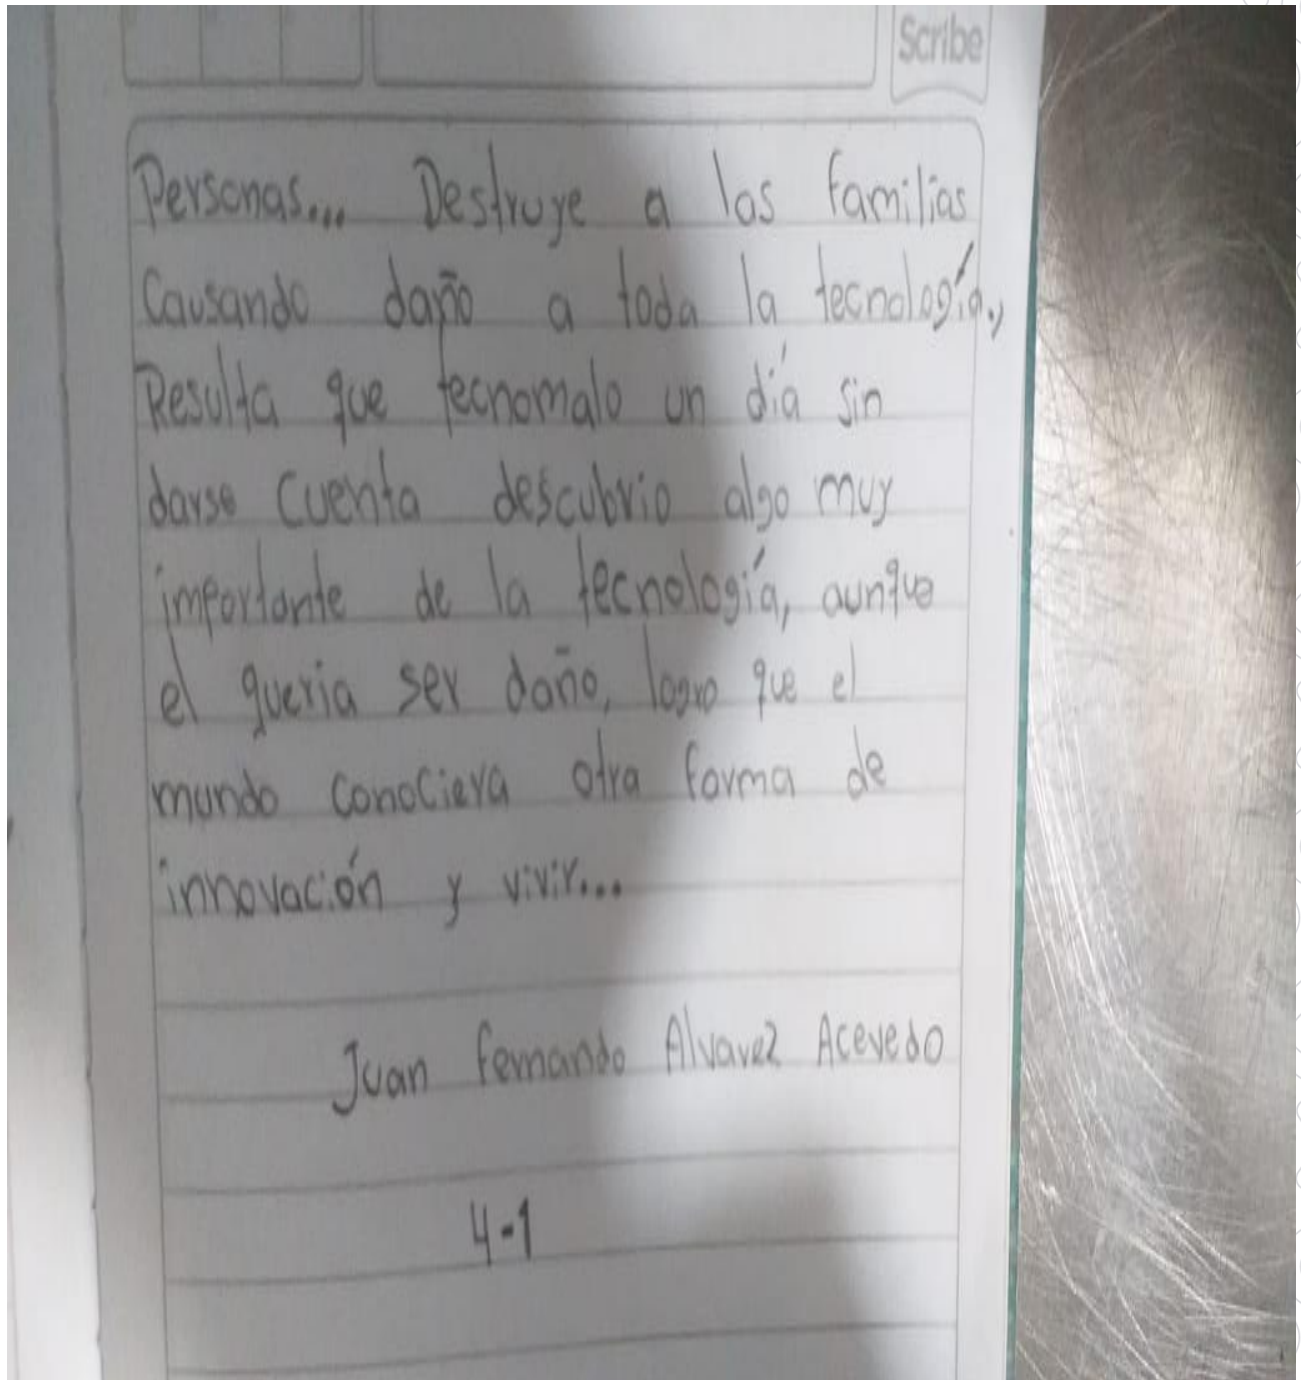 Scribe
Personas... Destruye a las familias
Causando daño a toda la tecnología,
Resulta que tecnomalo un día sin
darse cuenta descubrio algo muy
importante de la tecnología, aunque
el queria ser daño, logro que el
mundo conociera otra forma de
innovación y vivir...
Juan fernando Alvarez Acevedo
4-1